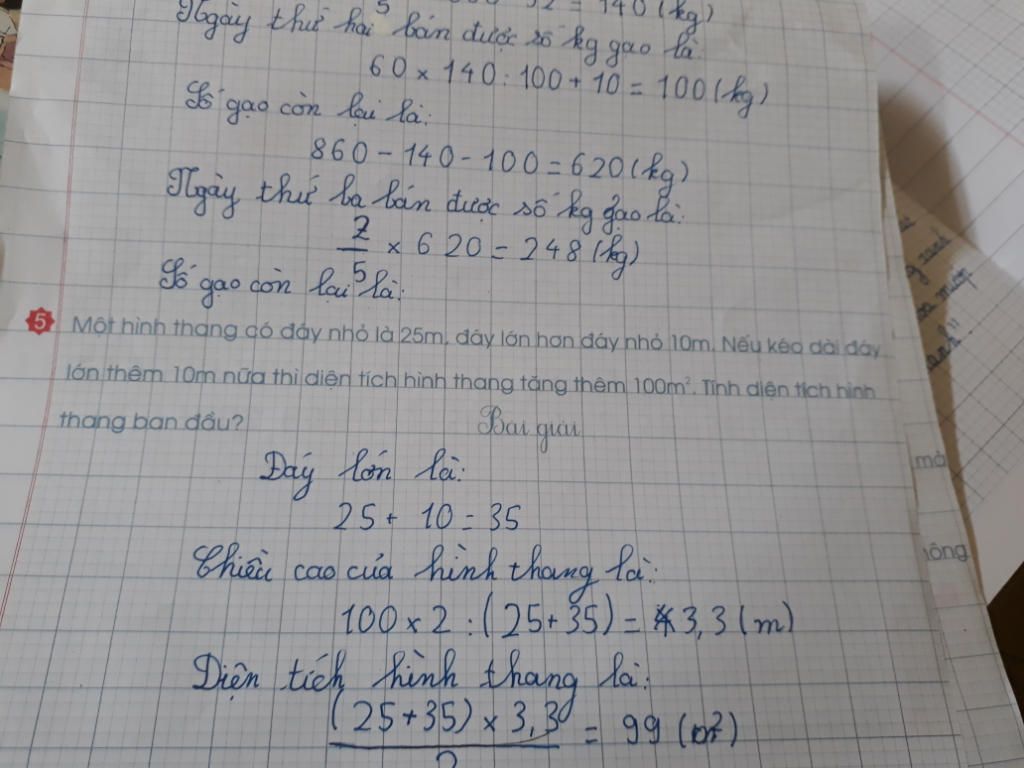 = 140 (kg)
Ngày thứ hai bán được số kg gạo là:
60 × 140 : 100 + 10 = 100 (kg)
Số gạo còn lại là:
860 - 140 - 100 = 620 (kg)
Ngày thứ ba bán được số kg gạo là:
2/5 × 620 = 248 (kg)
Số gạo còn lại là:
5 Một hình thang có đáy nhỏ là 25m, đáy lớn hơn đáy nhỏ 10m. Nếu kéo dài đáy
lớn thêm 10m nữa thì diện tích hình thang tăng thêm 100m². Tính diện tích hình
thang ban đầu?
Bài giải
Đáy lớn là:
25 + 10 = 35
Chiều cao của hình thang là:
100 × 2 : (25 + 35) = 3,3 (m)
Diện tích hình thang là:
(25 + 35) × 3,3 / 2 = 99 (m²)